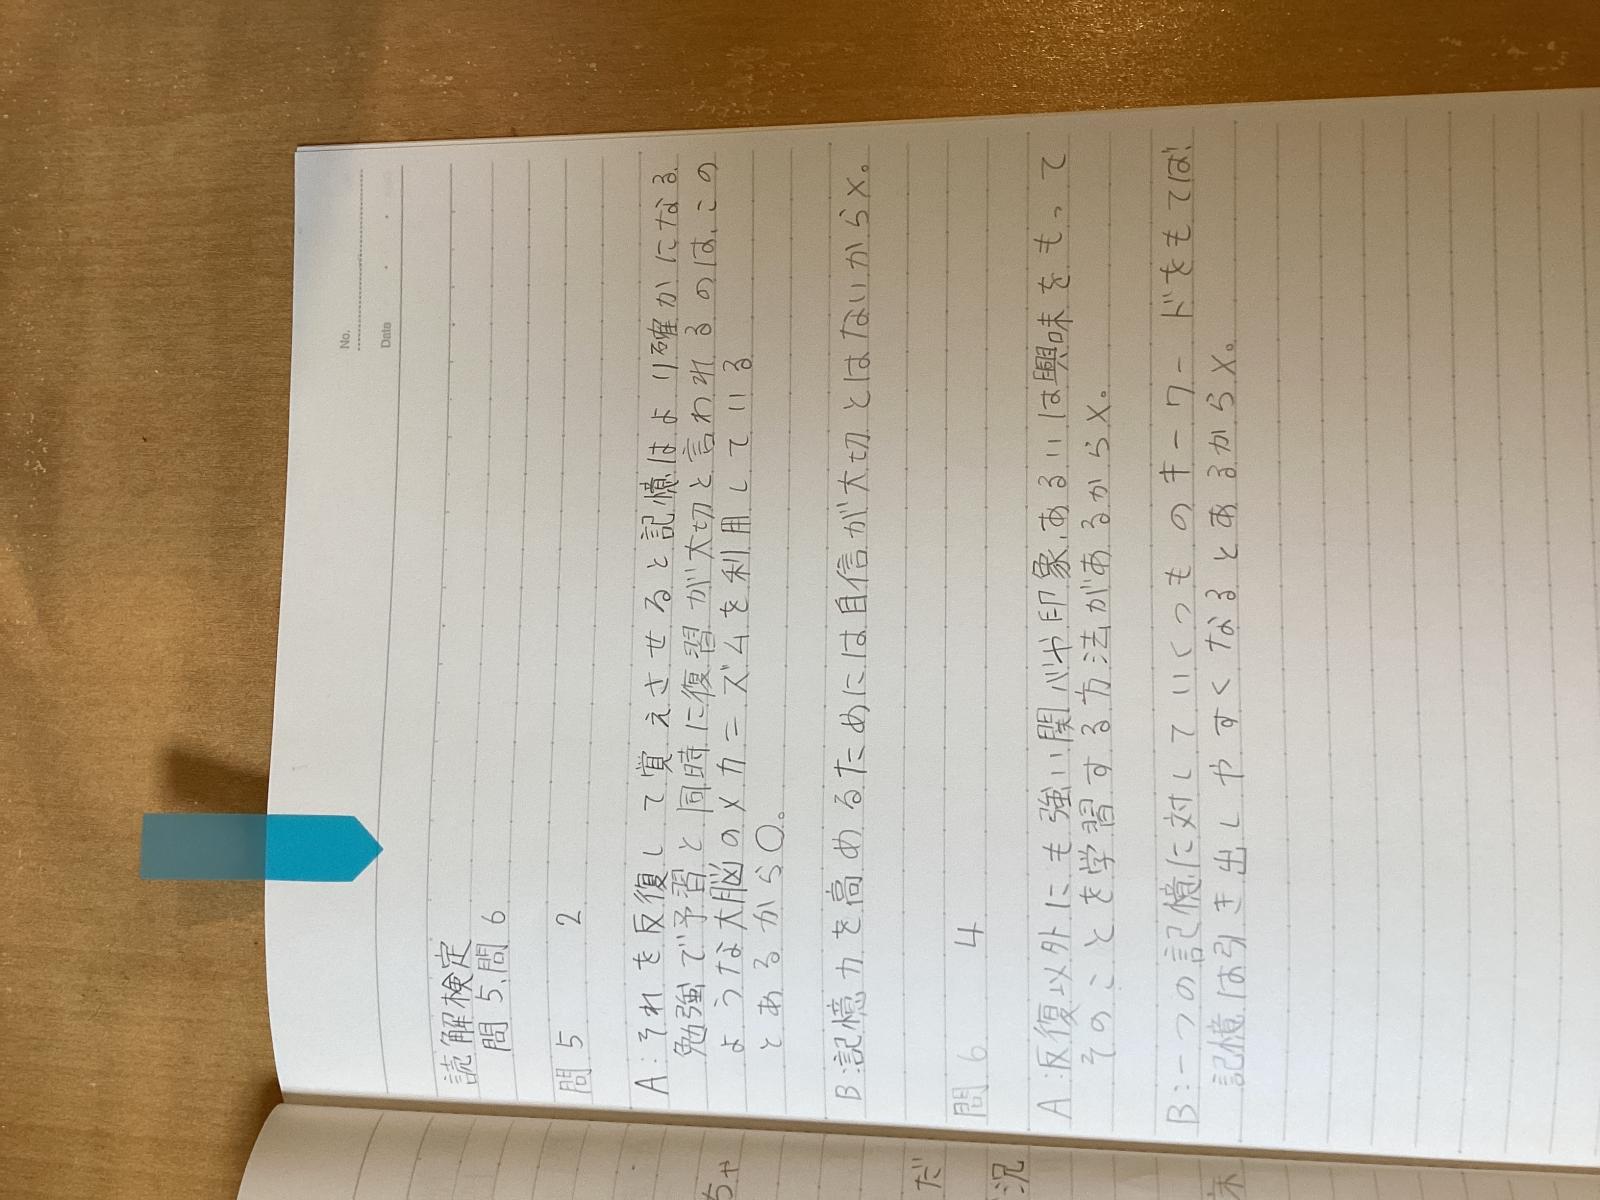 No.
Date
読解検定
問5,問6
問5 2
A:それを反復して覚えさせると記憶はより確かになる
勉強で予習と同時に復習が大切と言われるのは、この
ような大脳のメカニズムを利用している
とあるから○。
B:記憶力を高めるためには自信が大切とはないから×。
問6 4
A:反復以外にも強い関心や印象、あるいは興味をもって
そのことを学習する方法があるから×。
B:一つの記憶に対していくつものキーワードをもてば、
記憶は引き出しやすくなるとあるから×。
ちゃ
だ
況